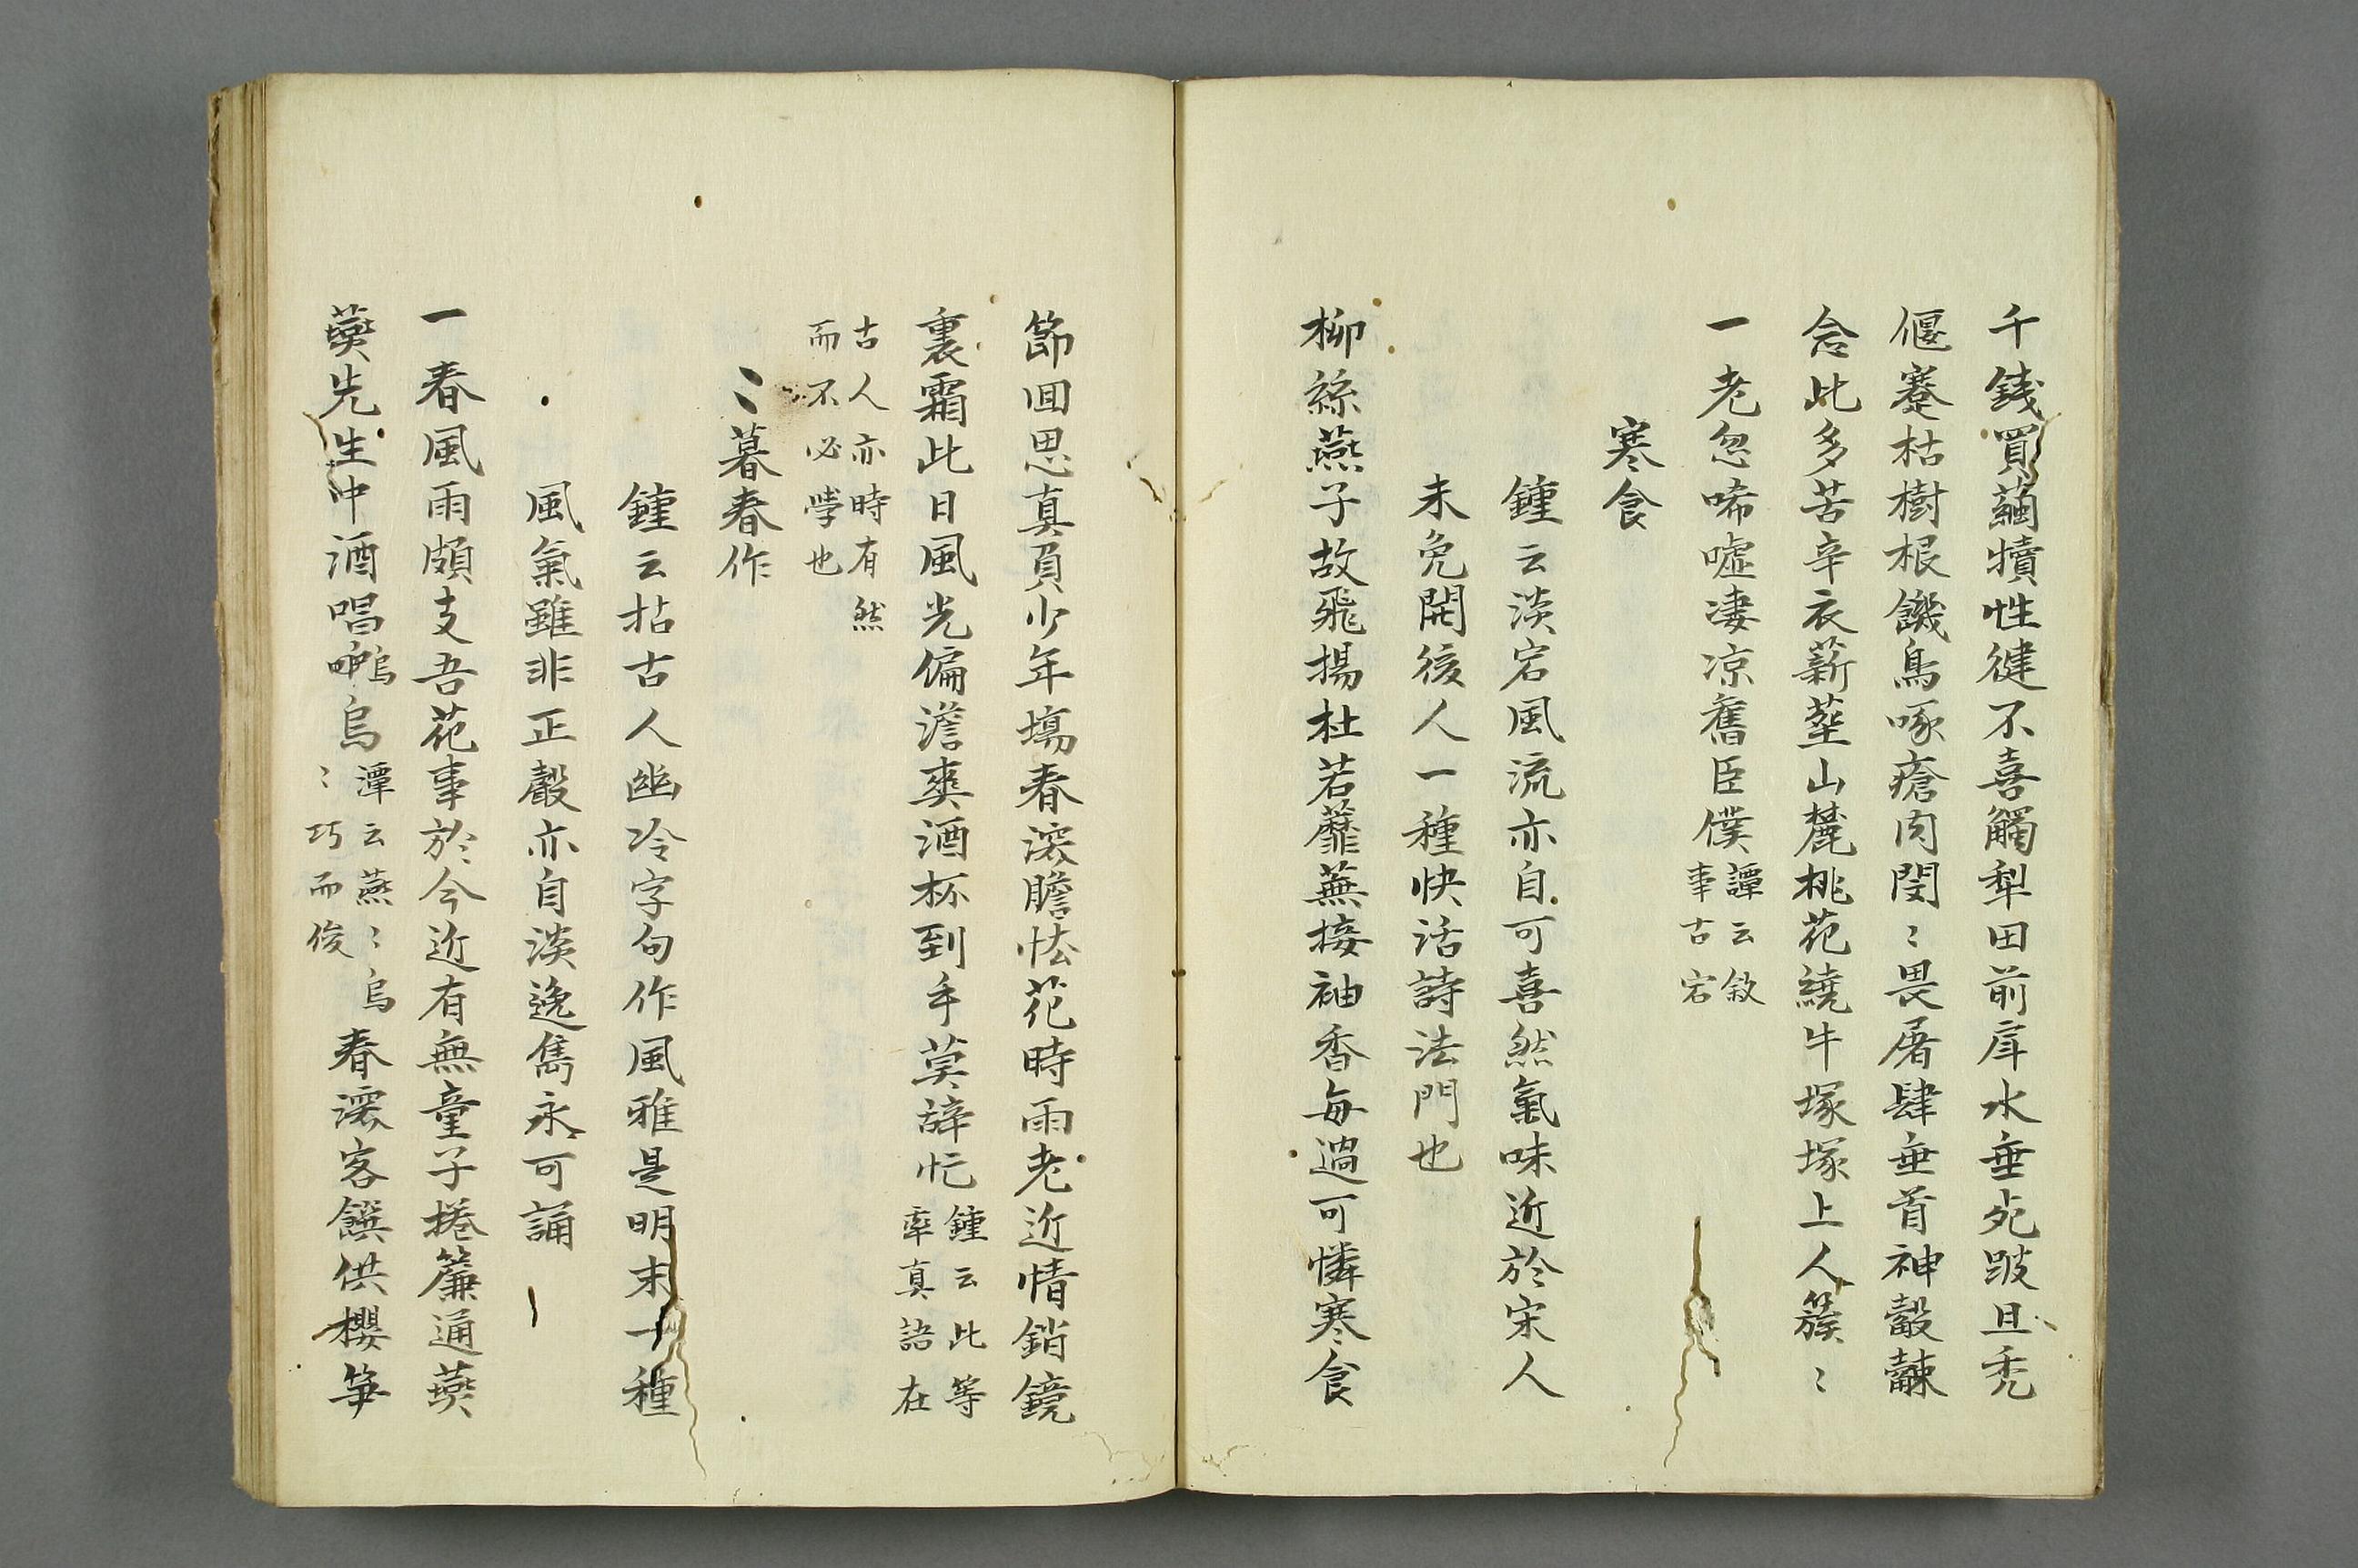 千錢買繭犢性健不喜觸犁田前岸水垂死跛且禿
偃蹇枯樹根饑鳥啄瘡肉閔〻畏屠肆垂首神觳觫
念此多苦辛衣薪塟山麓桃花繞牛塚塚上人簇〻
一老忽唏噓凄凉舊臣僕
譚云敘
事古宕
寒食
鍾云淡宕風流亦自可喜然氣味近於宋人
未免開後人一種快活詩法門也
柳絲燕子故飛揚杜若蘼蕪接袖香每過可憐寒食
節回思真負少年塲春深膽怯花時雨老近情銷鏡
裏霜此日風光偏澹爽酒杯到手莫辞忙
鍾云此等
率真語在
古人亦時有然
而不必學也
〻暮春作
鍾云拈古人幽冷字句作風雅是明末一種
風氣雖非正聲亦自淡逸雋永可誦
一春風雨頗支吾花事於今近有無童子捲簾通燕
燕先生中酒唱嗚烏
潭云燕〻烏
〻巧而俊
春深客饌供櫻笋